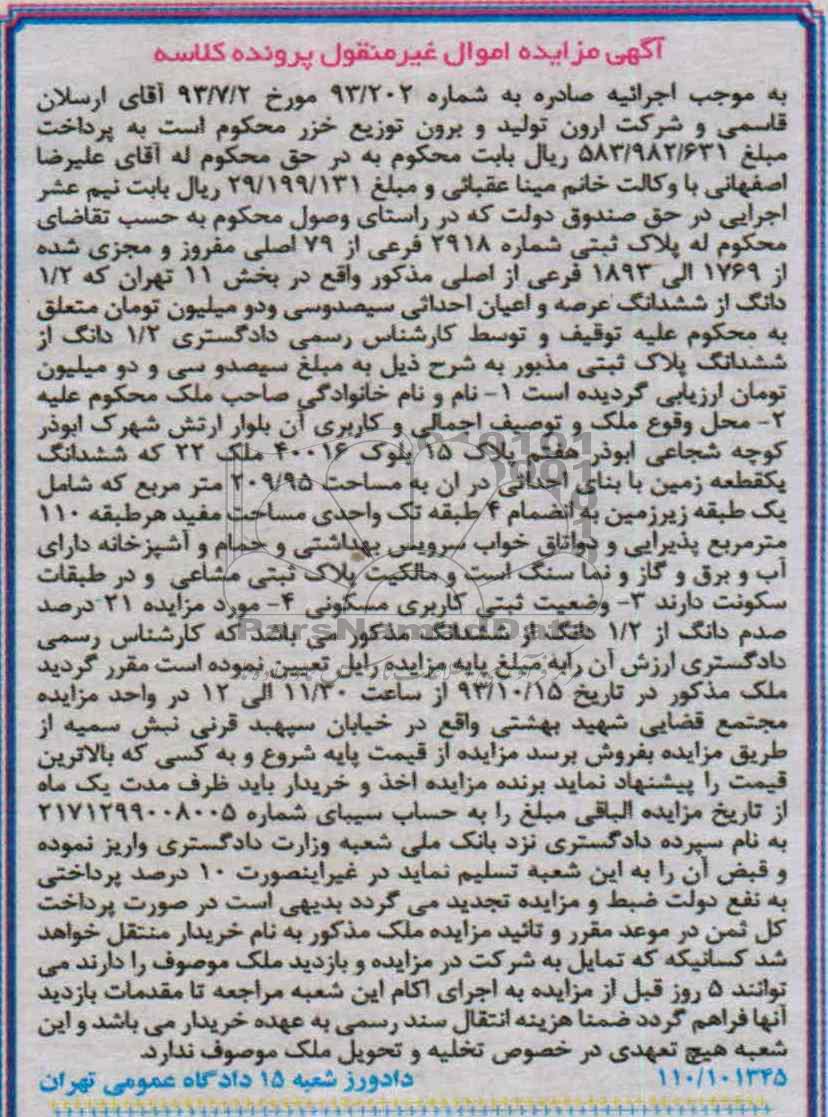 آگهی مزایده اموال غیرمنقول پرونده کلاسه
به موجب اجرائیه صادره به شماره ۹۳/۲۰۲ مورخ ۹۳/۷/۲ آقای ارسلان
قاسمی و شرکت ارون تولید و برون توزیع خزر محکوم است به پرداخت
مبلغ ۵۸۳/۹۸۲/۶۳۱ ریال بابت محکوم به در حق محکوم له آقای علیرضا
اصفهانی با وکالت خانم مینا عقبائی و مبلغ ۲۹/۱۹۹/۱۳۱ ریال بابت نیم عشر
اجرایی در حق صندوق دولت که در راستای وصول محکوم به حسب تقاضای
محکوم له پلاک ثبتی شماره ۲۹۱۸ فرعی از ۷۹ اصلی مفروز و مجزی شده
از ۱۷۶۹ الی ۱۸۹۳ فرعی از اصلی مذکور واقع در بخش ۱۱ تهران که ۱/۲
دانگ از ششدانگ عرصه و اعیان احداثی سیصدوسی ودو میلیون تومان متعلق
به محکوم علیه توقیف و توسط کارشناس رسمی دادگستری ۱/۲ دانگ از
ششدانگ پلاک ثبتی مذبور به شرح ذیل به مبلغ سیصدو سی و دو میلیون
تومان ارزیابی گردیده است ۱- نام و نام خانوادگی صاحب ملک محکوم علیه
۲- محل وقوع ملک و توصیف اجمالی و کاربری آن بلوار ارتش شهرک ابوذر
کوچه شجاعی ابوذر هفتم پلاک ۱۵ بلوک ۴۰۰۱۶ ملک ۲۲ که ششدانگ
یکقطعه زمین با بنای احداثی در ان به مساحت ۲۰۹/۹۵ متر مربع که شامل
یک طبقه زیرزمین به انضمام ۴ طبقه تک واحدی مساحت مفید هرطبقه ۱۱۰
مترمربع پذیرایی و دواتاق خواب سرویس بهداشتی و حمام و آشپزخانه دارای
آب و برق و گاز و نما سنگ است و مالکیت پلاک ثبتی مشاعی و در طبقات
سکونت دارند ۳- وضعیت ثبتی کاربری مسکونی ۴- مورد مزایده ۲۱ درصد
صدم دانگ از ۱/۲ دانگ از ششدانگ مذکور می باشد که کارشناس رسمی
دادگستری ارزش آن رابه مبلغ پایه مزایده رایل تعیین نموده است مقرر گردید
ملک مذکور در تاریخ ۹۳/۱۰/۱۵ از ساعت ۱۱/۳۰ الی ۱۲ در واحد مزایده
مجتمع قضایی شهید بهشتی واقع در خیابان سپهبد قرنی نبش سمیه از
طریق مزایده بفروش برسد مزایده از قیمت پایه شروع و به کسی که بالاترین
قیمت را پیشنهاد نماید برنده مزایده اخذ و خریدار باید ظرف مدت یک ماه
از تاریخ مزایده الباقی مبلغ را به حساب سیبای شماره ۲۱۷۱۲۹۹۰۰۸۰۰۵
به نام سپرده دادگستری نزد بانک ملی شعبه وزارت دادگستری واریز نموده
و قبض آن را به این شعبه تسلیم نماید در غیراینصورت ۱۰ درصد پرداختی
به نفع دولت ضبط و مزایده تجدید می گردد بدیهی است در صورت پرداخت
کل ثمن در موعد مقرر و تائید مزایده ملک مذکور به نام خریدار منتقل خواهد
شد کسانیکه که تمایل به شرکت در مزایده و بازدید ملک موصوف را دارند می
توانند ۵ روز قبل از مزایده به اجرای اکام این شعبه مراجعه تا مقدمات بازدید
آنها فراهم گردد ضمنا هزینه انتقال سند رسمی به عهده خریدار می باشد و این
شعبه هیچ تعهدی در خصوص تخلیه و تحویل ملک موصوف ندارد.
۱۱۰/۱۰۱۳۴۵ دادورز شعبه ۱۵ دادگاه عمومی تهران
ParsNamadData